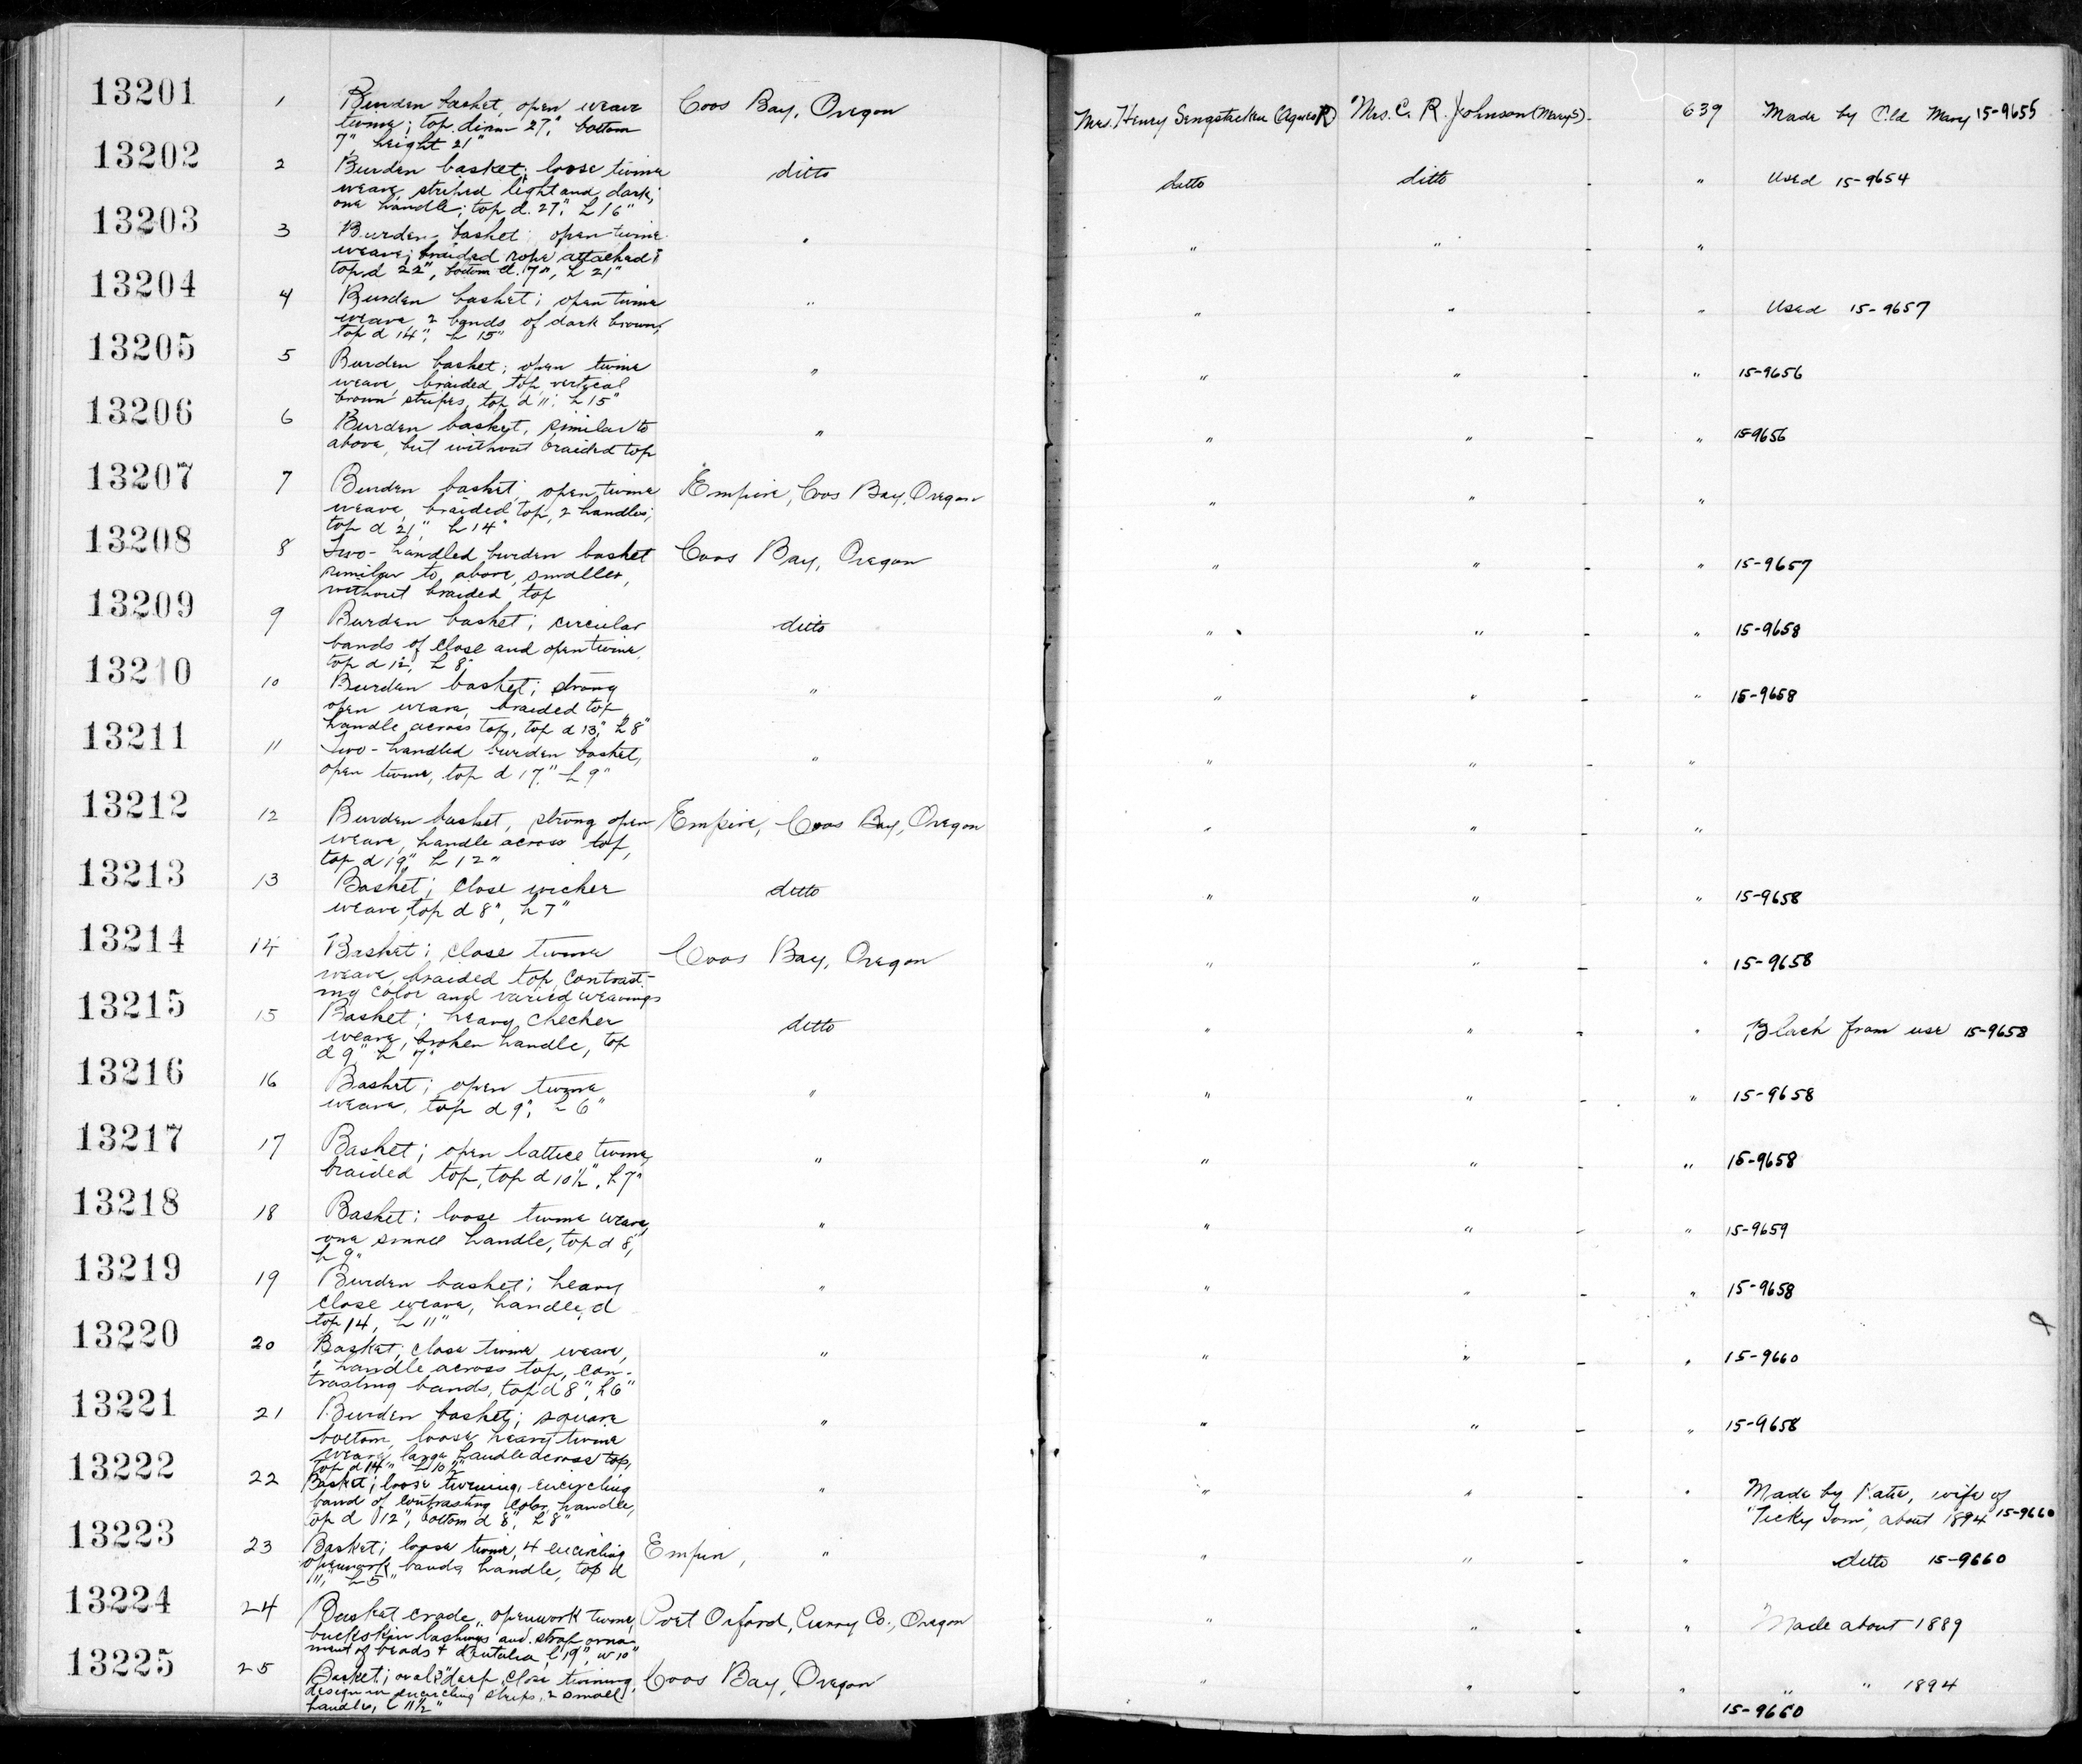 13201 1 Burden basket, open weave Coos Bay, Oregon Mrs. Henry Sengstacken (Agnes R) Mrs. C. R. Johnson (Mary S) - 639 Made by Old Mary 15-9655
twine; top diam 27", bottom
7", height 21"
13202 2 Burden basket; loose twine ditto ditto ditto - " Used 15-9654
weave, striped light and dark;
one handle; top d. 27", h 16"
13203 3 Burden basket; open twine " " " - "
weave; braided rope attached;
top d 22", bottom d. 7", h 21"
13204 4 Burden basket; open twine " " " - " Used 15-9657
weave, 2 bands of dark brown,
top d 14", h 15"
13205 5 Burden basket; open twine " " " - " 15-9656
weave, braided top, vertical
brown stripes, top d 11", h 15"
13206 6 Burden basket, similar to " " " - " 15-9656
above, but without braided top
13207 7 Burden basket, open twine Empire, Coos Bay, Oregon " " - "
weave, braided top, 2 handles;
top d 21", h 14"
13208 8 Two-handled burden basket Coos Bay, Oregon " " - " 15-9657
similar to above, smaller,
without braided top
13209 9 Burden basket; circular ditto " " - " 15-9658
bands of close and open twine,
top d 12", h 8"
13210 10 Burden basket; strong " " " - " 15-9658
open weave, braided top,
handle across top, top d 13", h 8"
13211 11 Two-handled burden basket, " " " - "
open twine, top d 17", h 9"
13212 12 Burden basket, strong open Empire, Coos Bay, Oregon " " - "
weave, handle across top,
top d 19", h 12"
13213 13 Basket; close wicker ditto " " - " 15-9658
weave, top d 8", h 7"
13214 14 Basket; close twine Coos Bay, Oregon " " - " 15-9658
weave, braided top, contrast-
ing color and varied weavings
13215 15 Basket; heavy checker ditto " " - " Black from use 15-9658
weave, broken handle, top
d 9" h 7"
13216 16 Basket; open twine " " " - " 15-9658
weave, top d 9", h 6"
13217 17 Basket; open lattice twine, " " " - " 15-9658
braided top, top d 10½", h 7"
13218 18 Basket; loose twine weave, " " " - " 15-9659
one small handle, top d 8",
h 9"
13219 19 Burden basket; heavy " " " - " 15-9658
close weave, handle, d
top 14, h 11"
13220 20 Basket; close twine weave, " " " - " 15-9660
handle across top, con-
trasting bands, top d 8", h 6"
13221 21 Burden basket; square " " " - " 15-9658
bottom, loose heavy twine
weave, large handle across top,
top d 14" h 10½"
13222 22 Basket; loose twining, encircling " " " - " Made by Katie, wife of
band of contrasting color, handle, "Ticky Tom", about 1894 15-9660
top d 12", bottom d 8", h 8"
13223 23 Basket; loose twine, 4 encircling Empire, " " " - " ditto 15-9660
openwork bands, handle, top d
11", h 5"
13224 24 Basket crade, openwork twine, Port Orford, Curry Co., Oregon " " - " Made about 1889
buckskin lashings and strap, orna-
ment of beads & dentalia, l 19", w 10"
13225 25 Basket; oval 3" deep, close twining, Coos Bay, Oregon " " - " " " 1894
design in encircling strips, 2 small 15-9660
handles, l 11½"